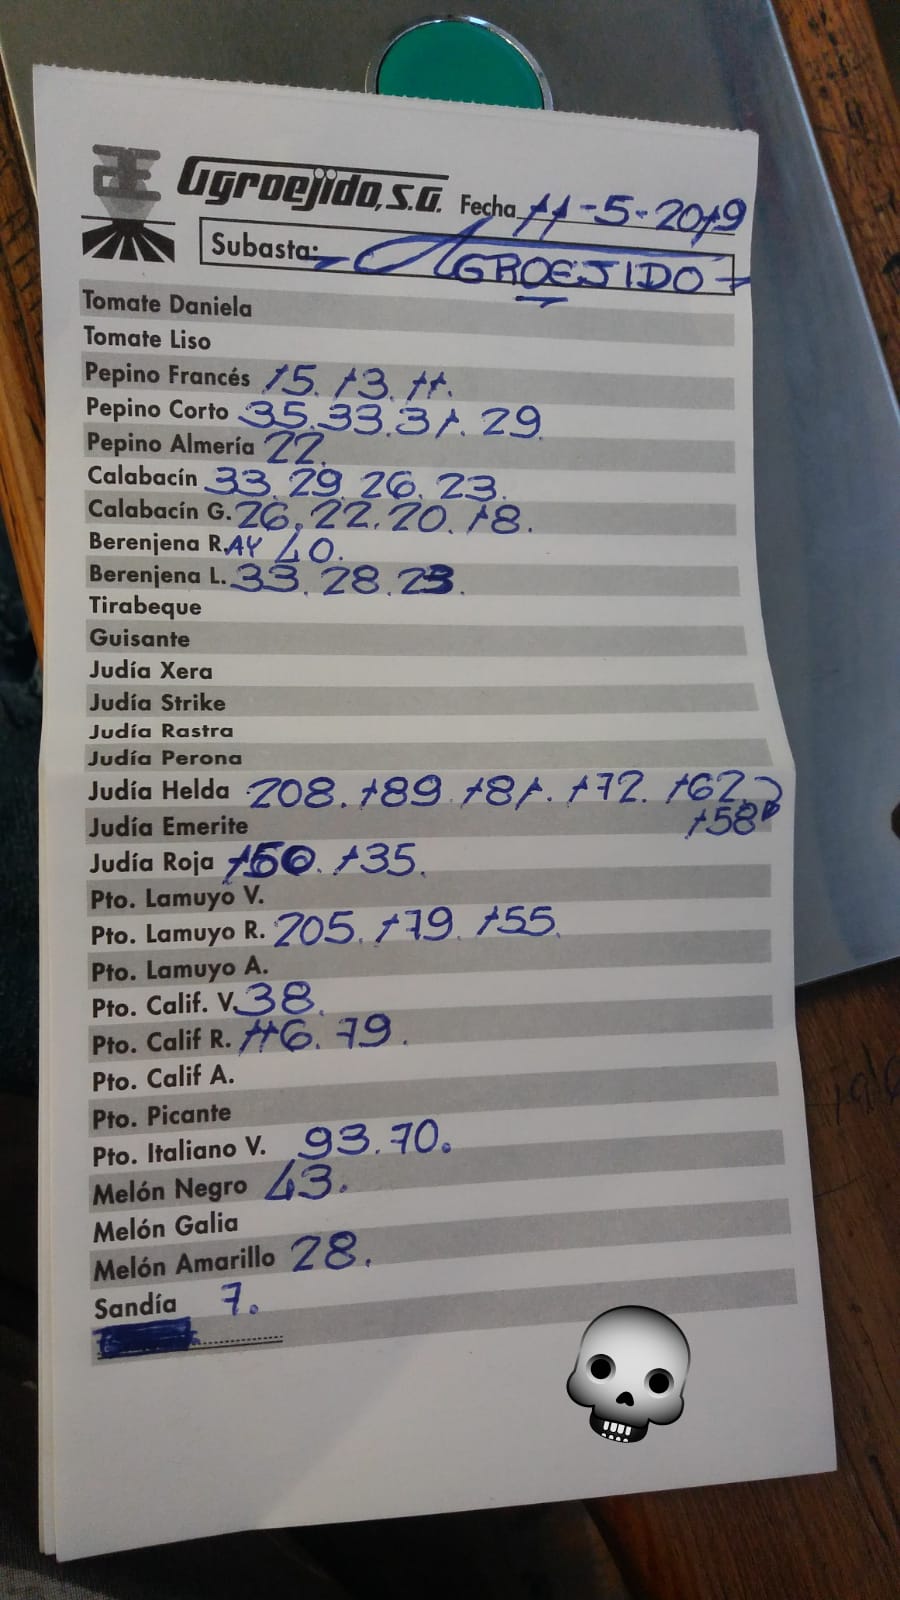 Agroejido, S.A. Fecha 11-5-2019
Subasta: AGROEJIDO
Tomate Daniela
Tomate Liso
Pepino Francés 15. 13. 11.
Pepino Corto 35. 33. 31. 29.
Pepino Almería 22.
Calabacín 33. 29. 26. 23.
Calabacín G. 26. 22. 20. 18.
Berenjena R.AY 40.
Berenjena L. 33. 28. 23.
Tirabeque
Guisante
Judía Xera
Judía Strike
Judía Rastra
Judía Perona
Judía Helda 208. 189. 181. 172. 162.
158
Judía Emerite
Judía Roja 150. 135.
Pto. Lamuyo V.
Pto. Lamuyo R. 205. 179. 155.
Pto. Lamuyo A.
Pto. Calif. V. 38.
Pto. Calif R. 116. 79.
Pto. Calif A.
Pto. Picante
Pto. Italiano V. 93. 70.
Melón Negro 43.
Melón Galia
Melón Amarillo 28.
Sandía 7.